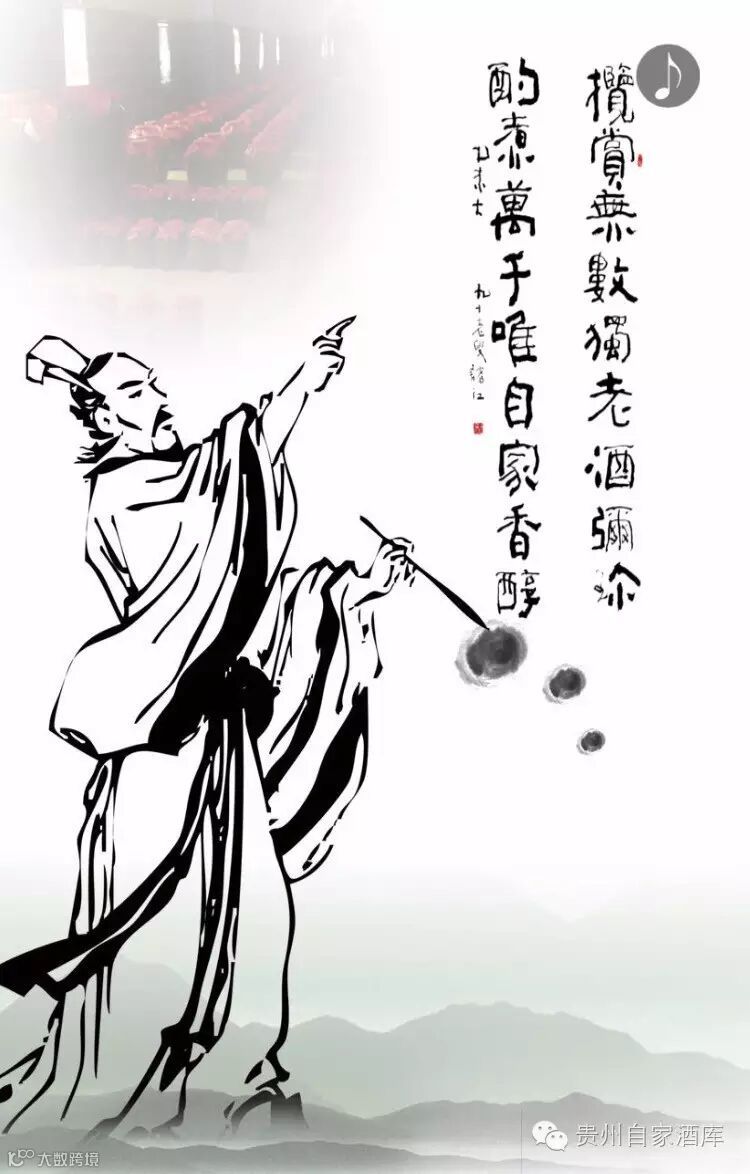 攬賞無數獨老酒彌珍
酌煮萬千唯自家香醇
九十老叟
贵州自家酒库
大数跨境